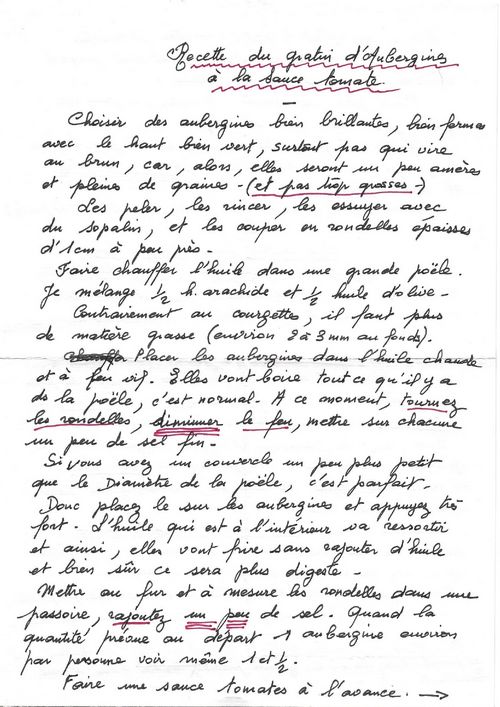 Recette du gratin d'Aubergines
à la sauce tomate.
Choisir des aubergines bien brillantes, bien fermes
avec le haut bien vert, surtout pas qui vire
au brun, car, alors, elles seront un peu amères
et pleines de graines - (et pas trop grosses -)
Les peler, les rincer, les essuyer avec
du sopalin, et les couper en rondelles épaisses
d'1cm à peu près -
Faire chauffer l'huile dans une grande poële.
Je mélange 1/2 h. arachide et 1/2 huile d'olive -
Contrairement au courgettes, il faut plus
de matière grasse (environ 2 à 3 mm au fond).
Placer les aubergines dans l'huile chaude
et à feu vif. Elles vont boire tout ce qu'il y a
ds la poële, c'est normal. A ce moment, tournez
les rondelles, diminuer le feu, mettre sur chacune
un peu de sel fin -
Si vous avez un couvercle un peu plus petit
que le Diamètre de la poële, c'est parfait.
Donc placez le sur les aubergines et appuyez très
fort. L'huile qui est à l'intérieur va ressortir
et ainsi, elles vont frire sans rajouter d'huile
et bien sûr ce sera plus digeste -
Mettre au fur et à mesure les rondelles dans une
passoire, rajoutez un peu de sel. Quand la
quantité prévue au départ 1 aubergine environ
par personne voir même 1 et 1/2.
Faire une sauce tomates à l'avance. →